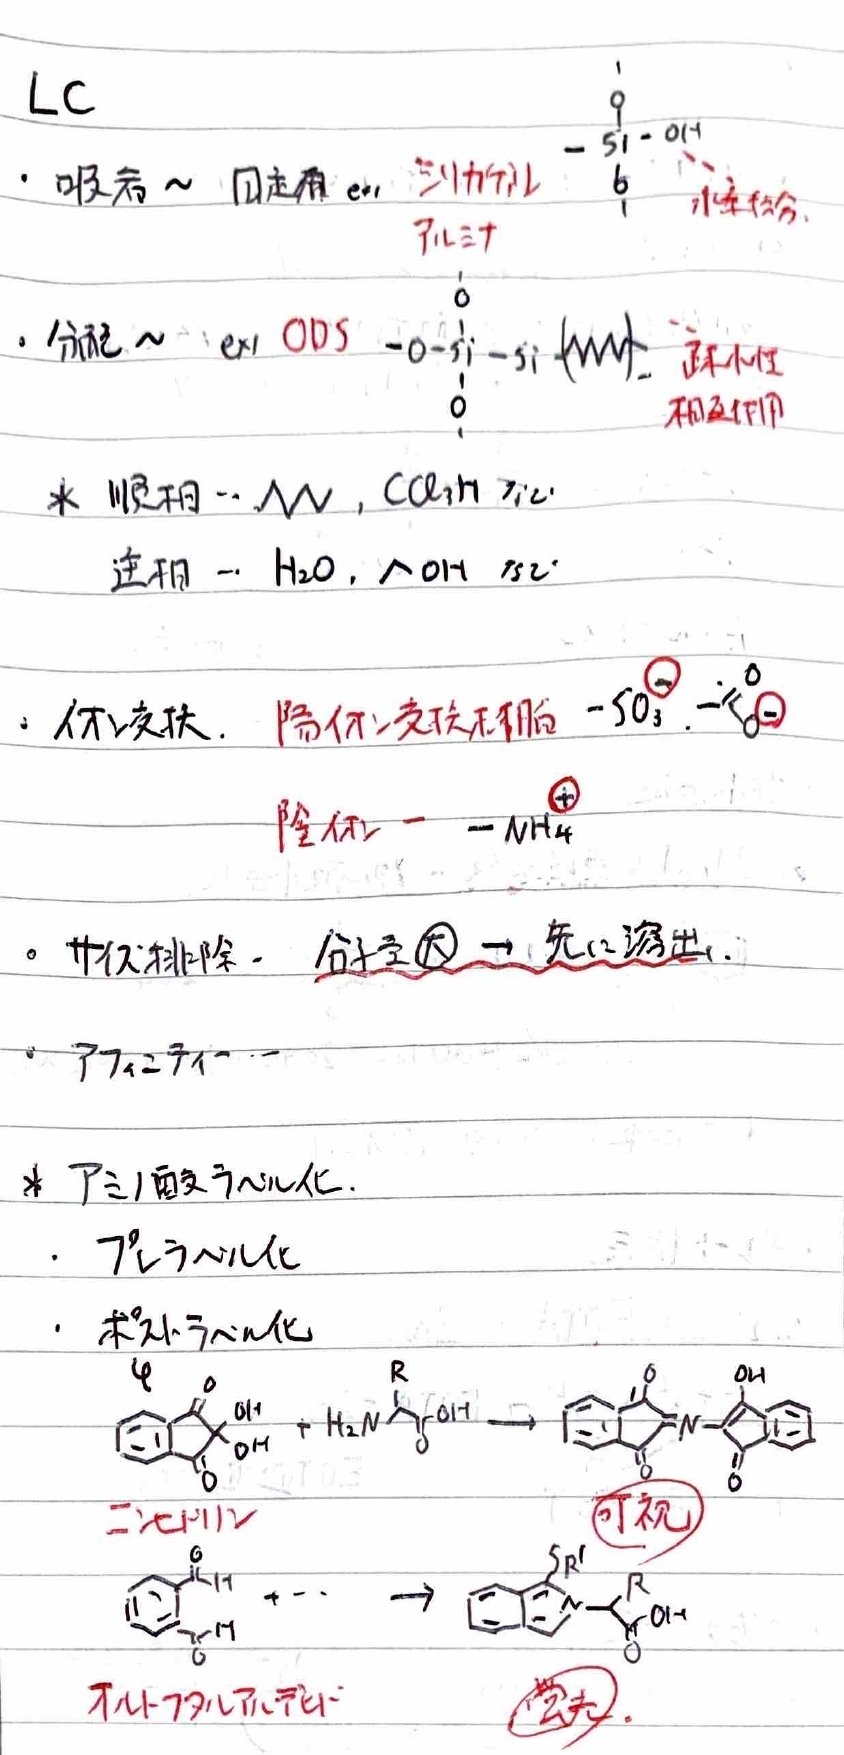 LC
・吸着～ 固定相 ex) シリカゲル -Si-OH 水素結合.
アルミナ
・分配～ ex) ODS -O-Si-Si 疎水性
相互作用
* 順相… , CCl3H など
逆相… H2O, OH など
・イオン交換. 陽イオン交換樹脂 -SO3⊖. O O⊖
陰イオン〃 -NH4⊕
・サイズ排除. 分子量大→先に溶出.
・アフィニティー…
* アミノ酸ラベル化.
・プレラベル化
・ポストラベル化
O OH OH O + H2N R OH O → O O N OH O
ニンヒドリン 可視
O H H O + … → SR' N R OH O
オルトフタルアルデヒド 蛍光.